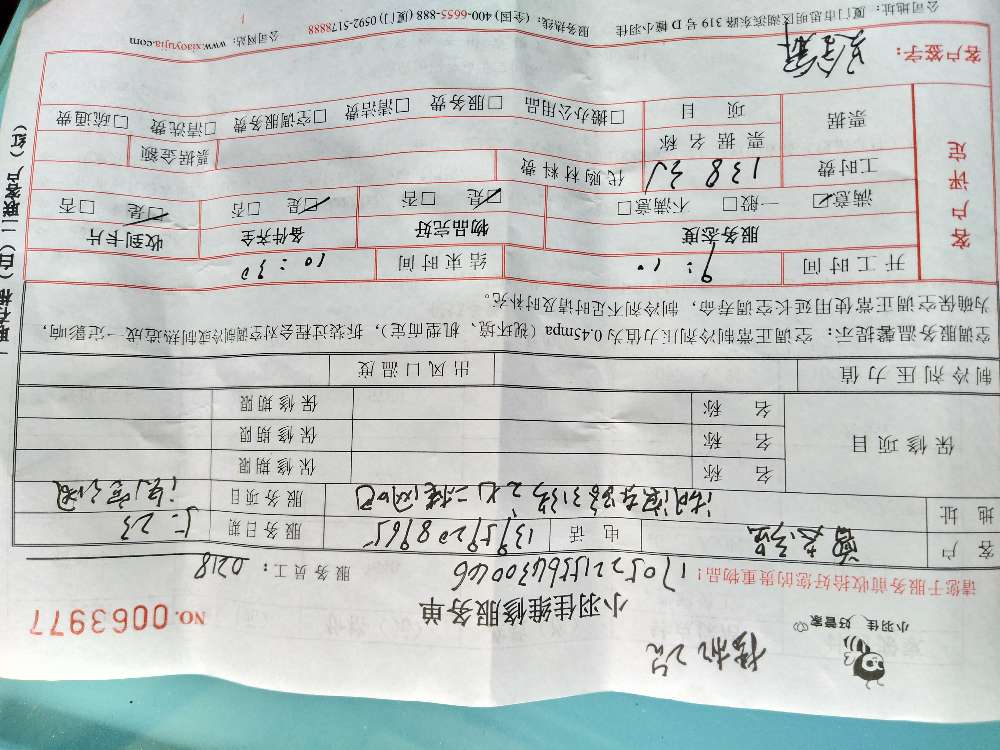 小羽佳 好管家
小羽佳维修服务单
NO. 0063977
请您于服务前收拾好您的贵重物品！
服务员工： 0218
客户
电话 13959208965
服务日期 5.23
地址
服务项目
保修项目
名称 保修期限
名称 保修期限
名称 保修期限
制冷剂压力值 出风口温度
空调服务温馨提示：空调正常制冷剂压力值为0.45mpa（视环境、机型而定），拆装过程会对空调制冷或制热造成一定影响，
为确保空调正常使用延长空调寿命，制冷剂不足时请及时补充。
客户评定
开工时间 9:10 结束时间 10:30
服务态度 物品完好 备件齐全 收到卡片
满意☑ 一般□ 不满意□ ☑是 □否 ☑是 □否 ☑是 □否
工时费 138元 代购材料费
票据 票据名称 票据金额
项目 □搬办公用品 □服务费 □清洁费 □空调服务费 □清洗费 □疏通费
客户签字：
公司地址：厦门市思明区湖滨东路319号D幢小羽佳 服务热线：（全国）400-6655-888（厦门）0592-5178888 公司网站：www.xiaoyujia.com
一联存根（白）二联客户（红）